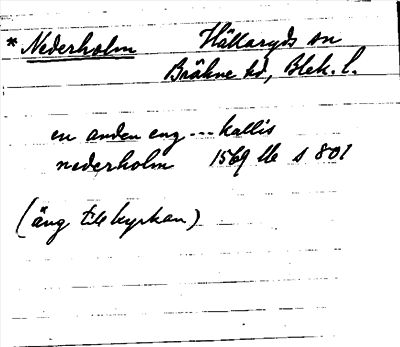 * Nederholm Hällaryds sn
Bräkne hd, Blek. l.
en anden eng --- kallis
nederholm 1569 llb s 801
(äng till kyrkan)